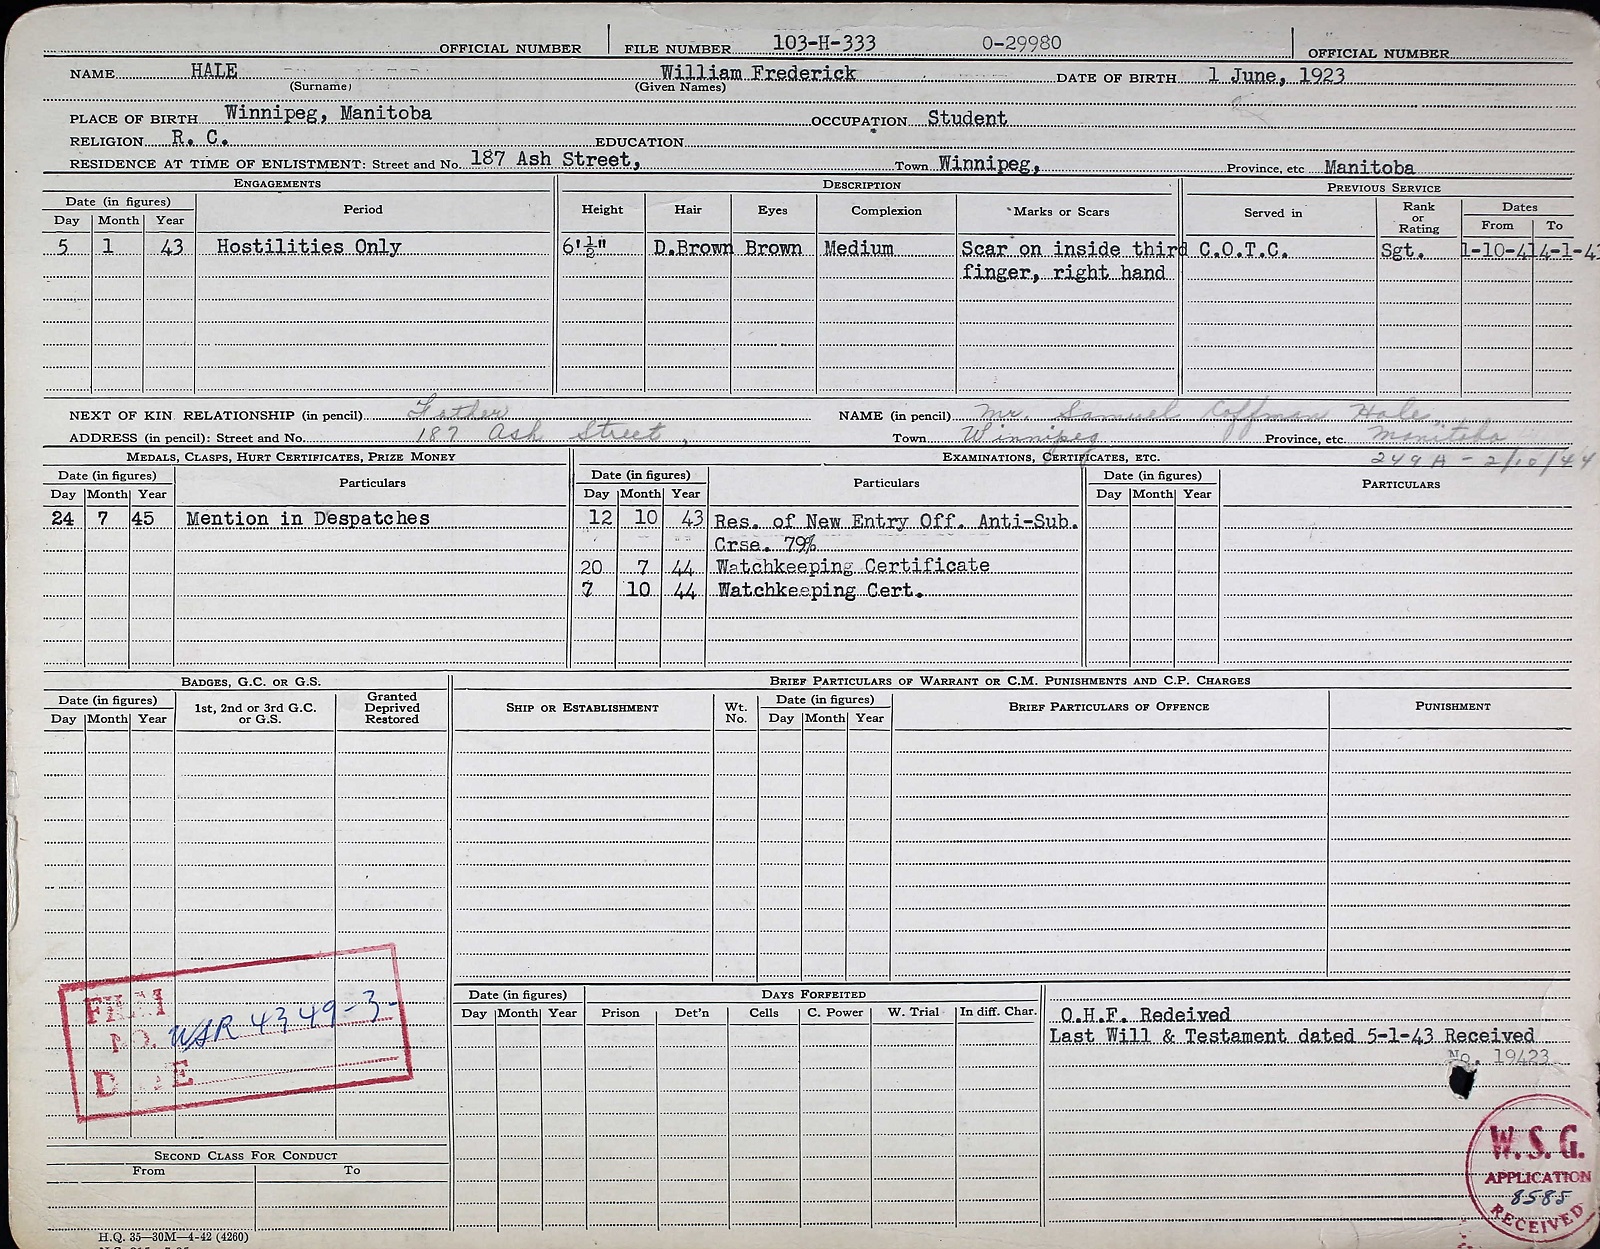 OFFICIAL NUMBER FILE NUMBER 103-H-333 O-29980 OFFICIAL NUMBER
NAME HALE William Frederick DATE OF BIRTH 1 June, 1923
(Surname) (Given Names)
PLACE OF BIRTH Winnipeg, Manitoba OCCUPATION Student
RELIGION R. C. EDUCATION
RESIDENCE AT TIME OF ENLISTMENT: Street and No. 187 Ash Street, Town Winnipeg, Province, etc Manitoba
ENGAGEMENTS DESCRIPTION PREVIOUS SERVICE
Date (in figures) Period Height Hair Eyes Complexion Marks or Scars Served in Rank or Rating Dates
Day Month Year From To
5 1 43 Hostilities Only 6'½" D.Brown Brown Medium Scar on inside third C.O.T.C. Sgt. 1-10-41 4-1-43
finger, right hand
NEXT OF KIN RELATIONSHIP (in pencil) Father NAME (in pencil) Mr. Samuel Coffman Hale
ADDRESS (in pencil): Street and No. 187 Ash Street, Town Winnipeg Province, etc. Manitoba
MEDALS, CLASPS, HURT CERTIFICATES, PRIZE MONEY EXAMINATIONS, CERTIFICATES, ETC. 249A - 2/10/44
Date (in figures) Particulars Date (in figures) Particulars Date (in figures) PARTICULARS
Day Month Year Day Month Year Day Month Year
24 7 45 Mention in Despatches 12 10 43 Res. of New Entry Off. Anti-Sub.
Crse. 79%
20 7 44 Watchkeeping Certificate
7 10 44 Watchkeeping Cert.
BADGES, G.C. OR G.S. BRIEF PARTICULARS OF WARRANT OR C.M. PUNISHMENTS AND C.P. CHARGES
Date (in figures) 1st, 2nd or 3rd G.C. or G.S. Granted Deprived Restored SHIP OR ESTABLISHMENT Wt. No. Date (in figures) BRIEF PARTICULARS OF OFFENCE PUNISHMENT
Day Month Year Day Month Year
FILM
NO. WSR 4349-3-
DATE
Date (in figures) DAYS FORFEITED
Day Month Year Prison Det'n Cells C. Power W. Trial In diff. Char.
O.H.F. Redeived
Last Will & Testament dated 5-1-43 Received
No. 19423
W.S.G.
APPLICATION
8585
RECEIVED
SECOND CLASS FOR CONDUCT
From To
H.Q. 35—30M—4-42 (4260)